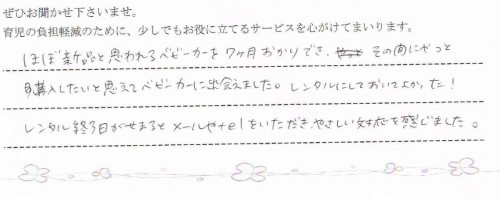 ぜひお聞かせ下さいませ。
育児の負担軽減のために、少しでもお役に立てるサービスを心がけてまいります。
ほぼ新品と思われるベビーカーを7ヶ月おかりでき、その内にやっと
購入したいと思えてベビーカーに出会えました。レンタルにしておいてよかった!
レンタル終了日がせまるとメールやtelをいただき、やさしい対応を感じました。